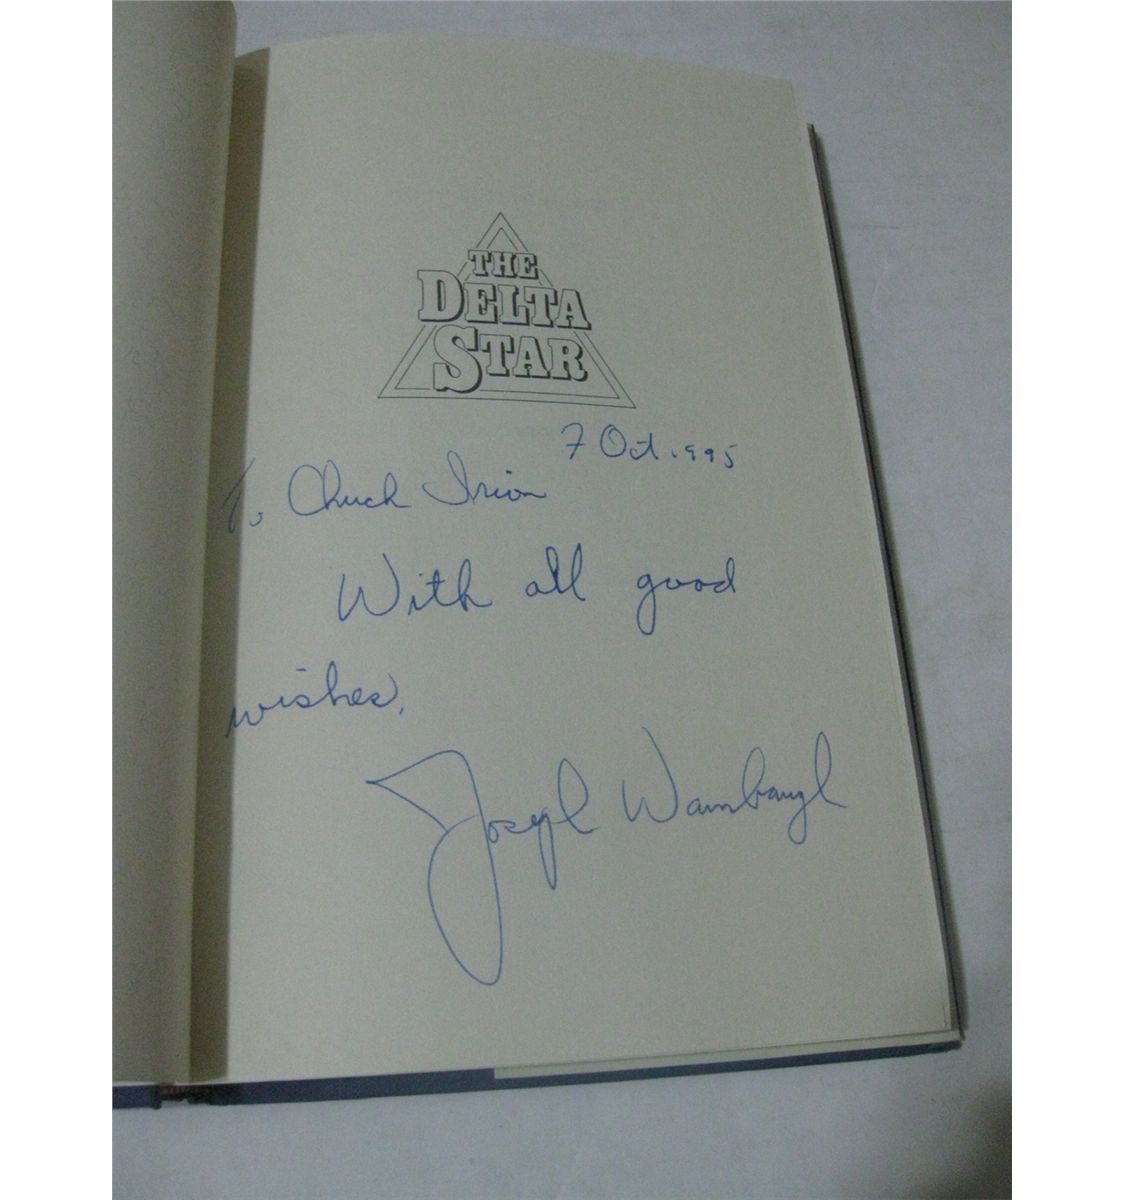 THE
DELTA
STAR
7 Oct. 1995
To Chuck Irion
With all good
wishes,
Joseph Wambaugh